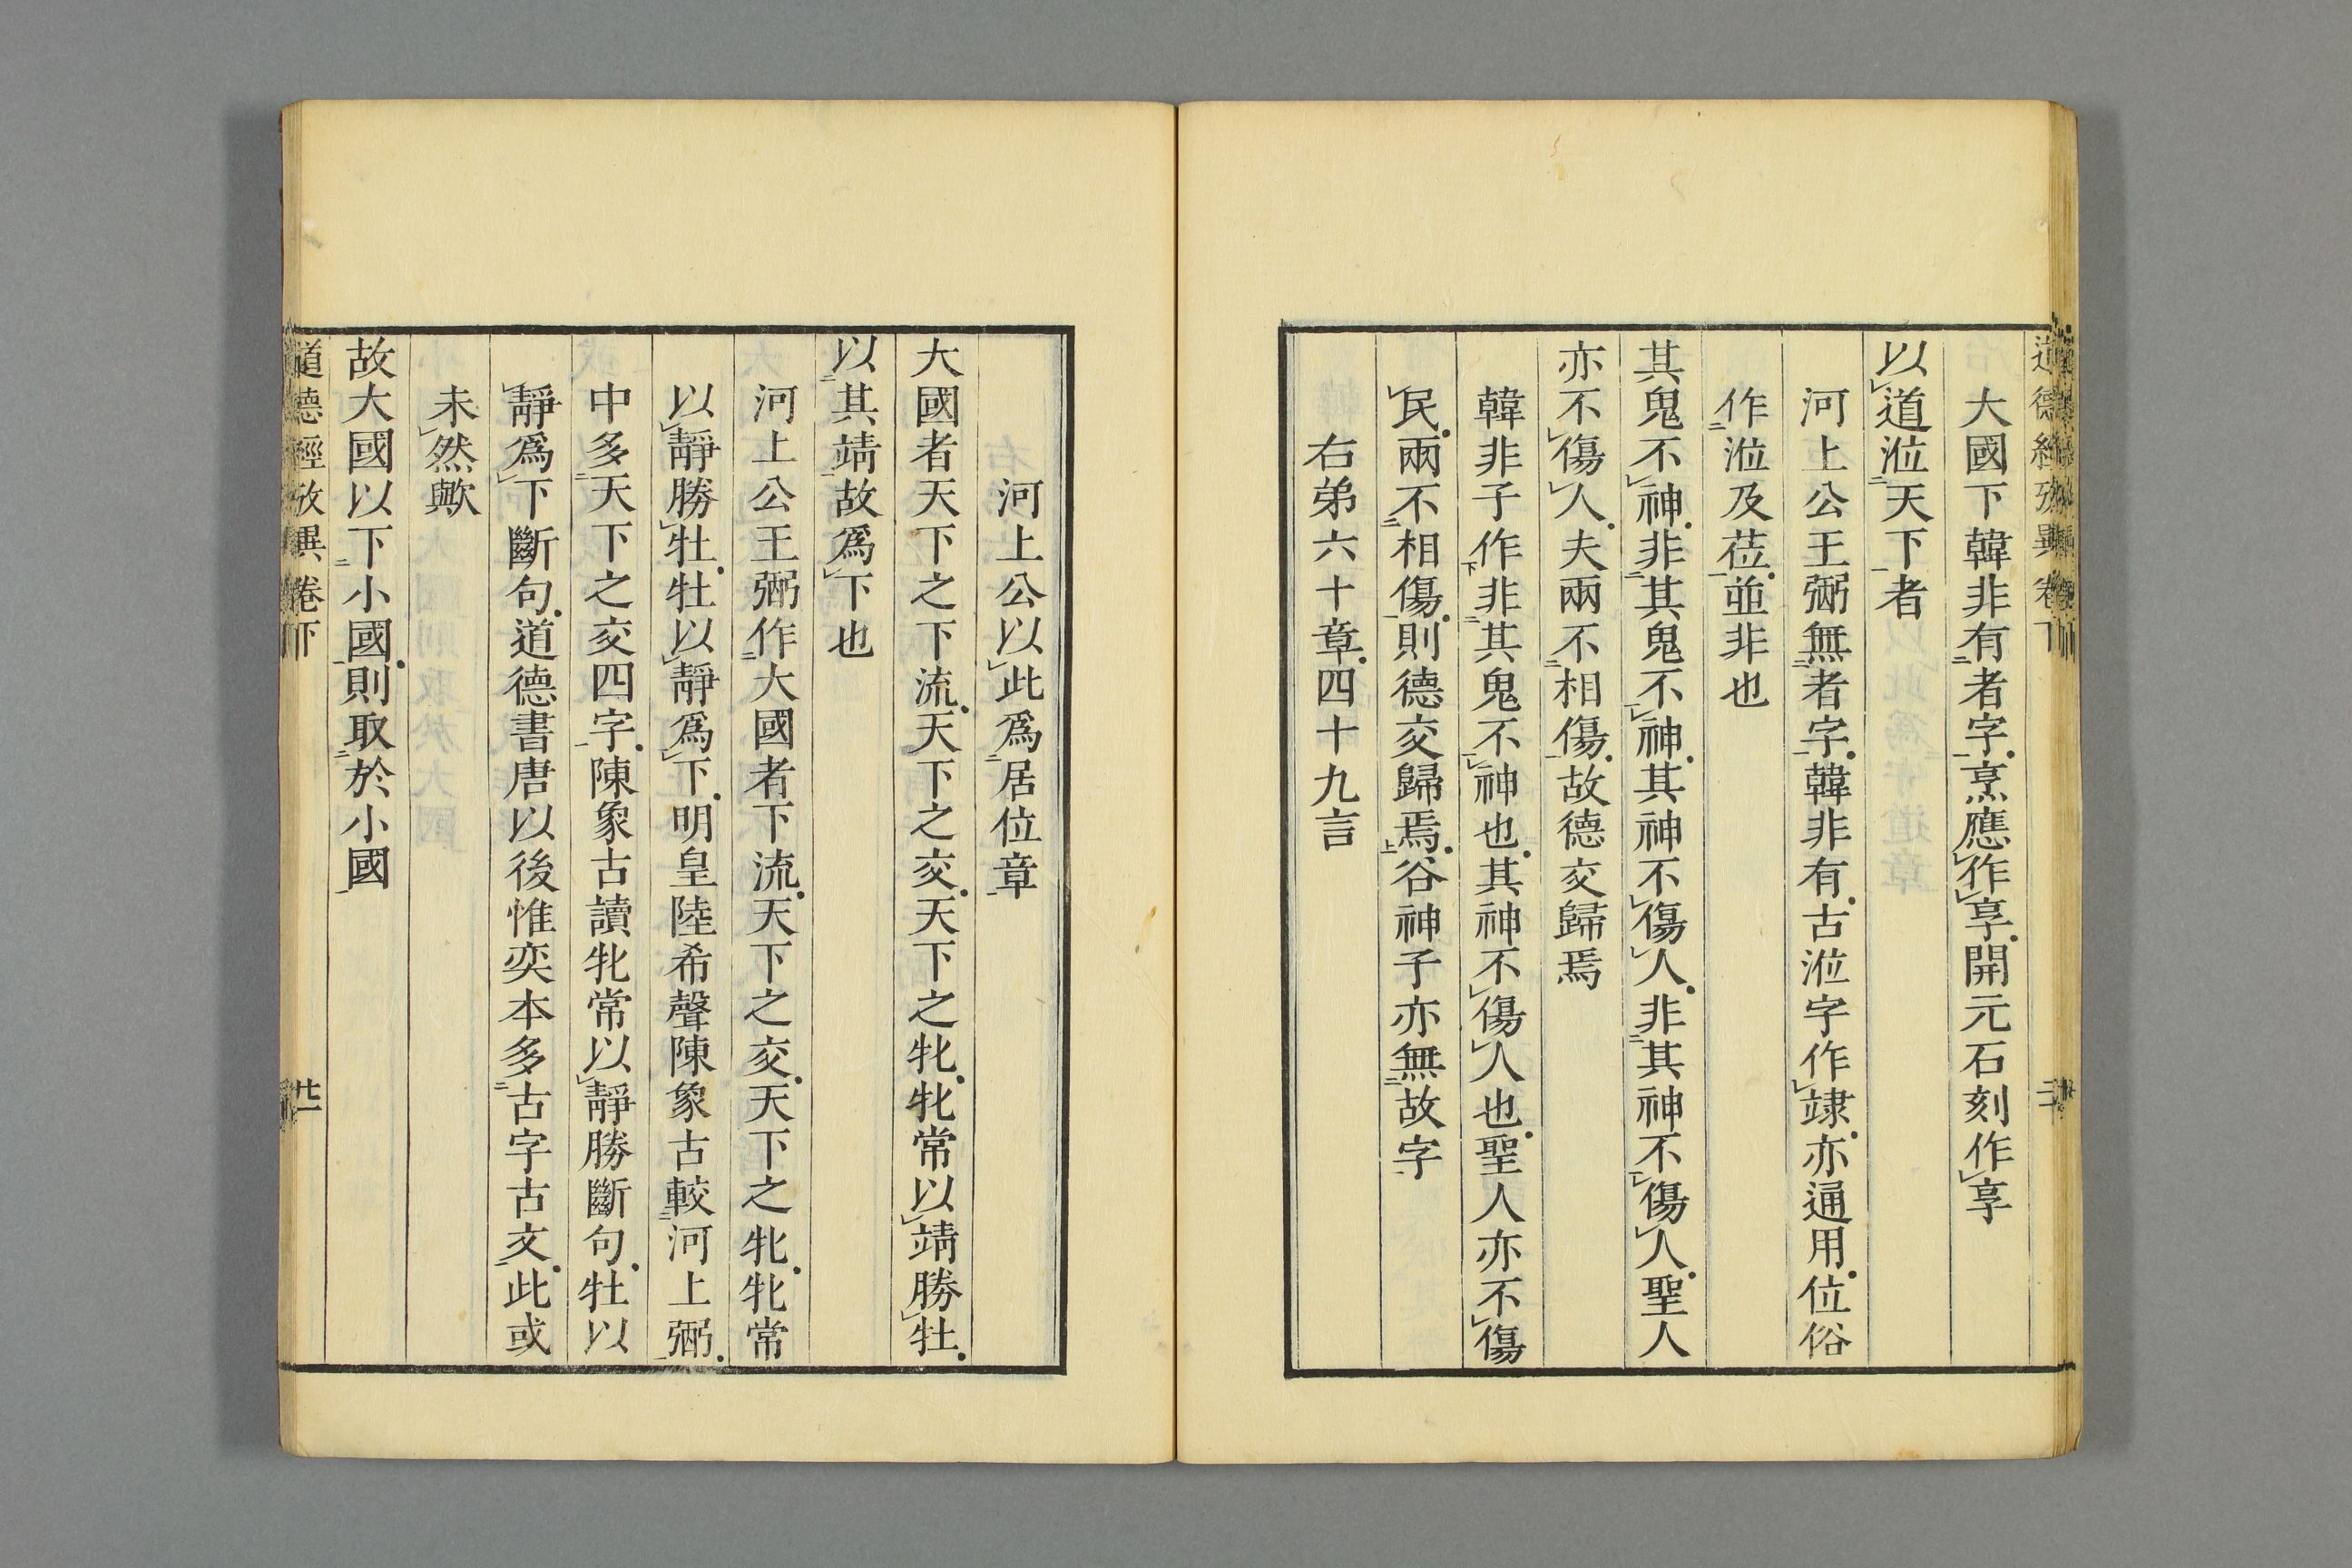 道德經攷異卷下
大國下韓非有者字烹應作亯開元石刻作享
以道涖天下者
河上公王弼無者字韓非有古涖字作𥩲亦通用位俗
作涖及莅並非也
其鬼不神非其鬼不神其神不傷人非其神不傷人聖人
亦不傷人夫兩不相傷故德交歸焉
韓非子作非其鬼不神也其神不傷人也聖人亦不傷
民兩不相傷則德交歸焉谷神子亦無故字
右弟六十章四十九言
河上公以此爲居位章
大國者天下之下流天下之交天下之牝牝常以靖勝牡
以其靖故爲下也
河上公王弼作大國者下流天下之交天下之牝牝常
以靜勝牡牡以靜爲下明皇陸希聲陳象古較河上弼
中多天下之交四字陳象古讀牝常以靜勝斷句牡以
靜爲下斷句道德書唐以後惟奕本多古字古文此或
未然歟
故大國以下小國則取於小國
道德經攷異卷下
廿二